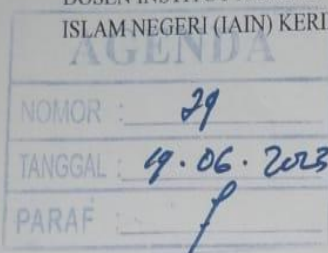 ISLAM NEGERI (IAIN) KERI
AGENDA
NOMOR : 29
TANGGAL : 19 . 06 . 2023
PARAF :